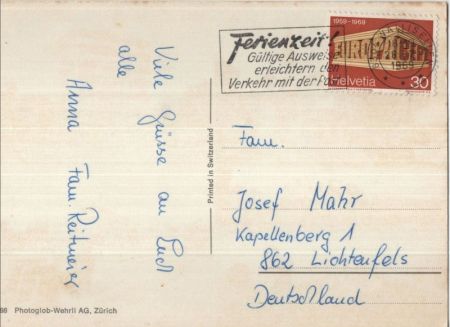 Viele Grüsse an Euch
alle
Anna Fam. Reitmeier
Printed in Switzerland
66 Photoglob-Wehrli AG, Zürich
Ferienzeit!
Gültige Ausweise
erleichtern den
Verkehr mit der
1959-1969
EUROPA CEPT
Helvetia 30
Fam.
Josef Mahr
Kapellenberg 1
862 Lichtenfels
Deutschland